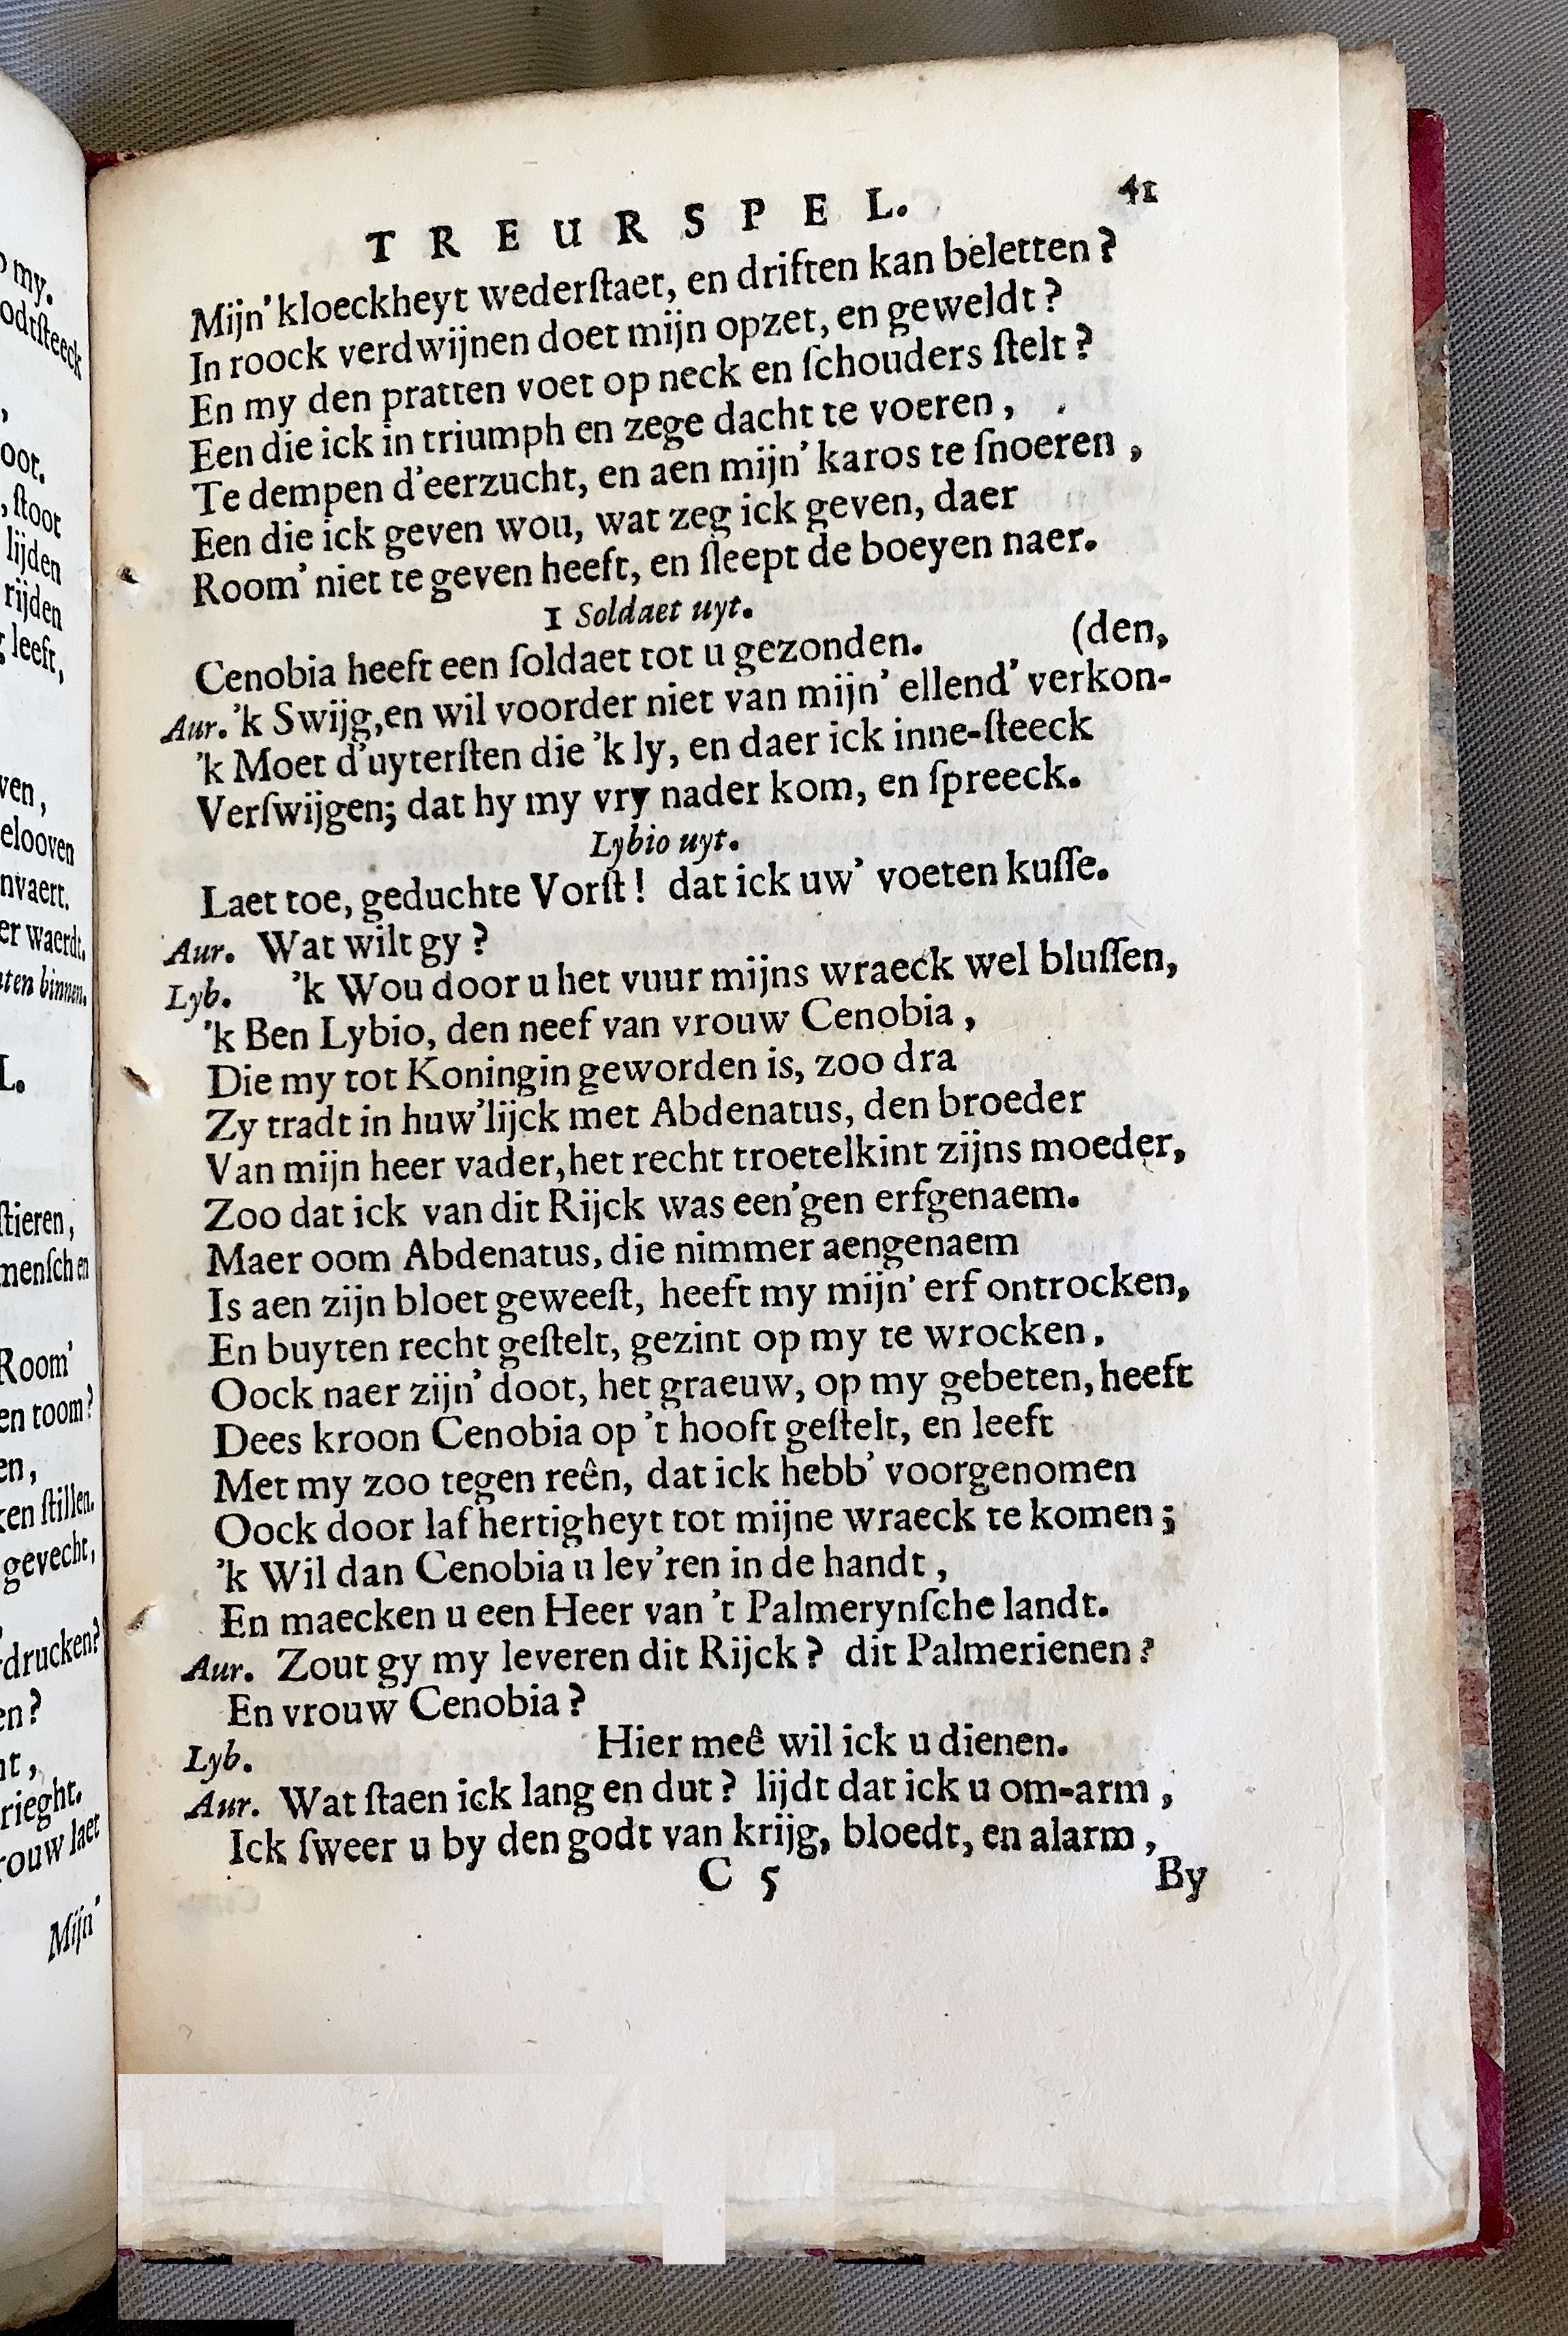 TREURSPEL. 41
Mijn' kloeckheyt wederſtaet, en driften kan beletten?
In roock verdwijnen doet mijn opzet, en geweldt?
En my den pratten voet op neck en ſchouders ſtelt?
Een die ick in triumph en zege dacht te voeren,
Te dempen d'eerzucht, en aen mijn' karos te ſnoeren,
Een die ick geven wou, wat zeg ick geven, daer
Room' niet te geven heeft, en ſleept de boeyen naer.
1 Soldaet uyt.
Cenobia heeft een ſoldaet tot u gezonden. (den,
Aur. 'k Swijg, en wil voorder niet van mijn' ellend' verkon-
'k Moet d'uyterſten die 'k ly, en daer ick inne-ſteeck
Verſwijgen; dat hy my vry nader kom, en ſpreeck.
Lybio uyt.
Laet toe, geduchte Vorſt! dat ick uw' voeten kuſſe.
Aur. Wat wilt gy?
Lyb. 'k Wou door u het vuur mijns wraeck wel bluſſen,
'k Ben Lybio, den neef van vrouw Cenobia,
Die my tot Koningin geworden is, zoo dra
Zy tradt in huw'lijck met Abdenatus, den broeder
Van mijn heer vader, het recht troetelkint zijns moeder,
Zoo dat ick van dit Rijck was een'gen erfgenaem.
Maer oom Abdenatus, die nimmer aengenaem
Is aen zijn bloet geweeſt, heeft my mijn' erf ontrocken,
En buyten recht geſtelt, gezint op my te wrocken.
Oock naer zijn' doot, het graeuw, op my gebeten, heeft
Dees kroon Cenobia op 't hooft geſtelt, en leeft
Met my zoo tegen reên, dat ick hebb' voorgenomen
Oock door lafhertigheyt tot mijne wraeck te komen;
'k Wil dan Cenobia u lev'ren in de handt,
En maecken u een Heer van 't Palmerynſche landt.
Aur. Zout gy my leveren dit Rijck? dit Palmerienen?
En vrouw Cenobia?
Lyb. Hier meê wil ick u dienen.
Aur. Wat ſtaen ick lang en dut? lijdt dat ick u om-arm,
Ick ſweer u by den godt van krijg, bloedt, en alarm,
C 5 By